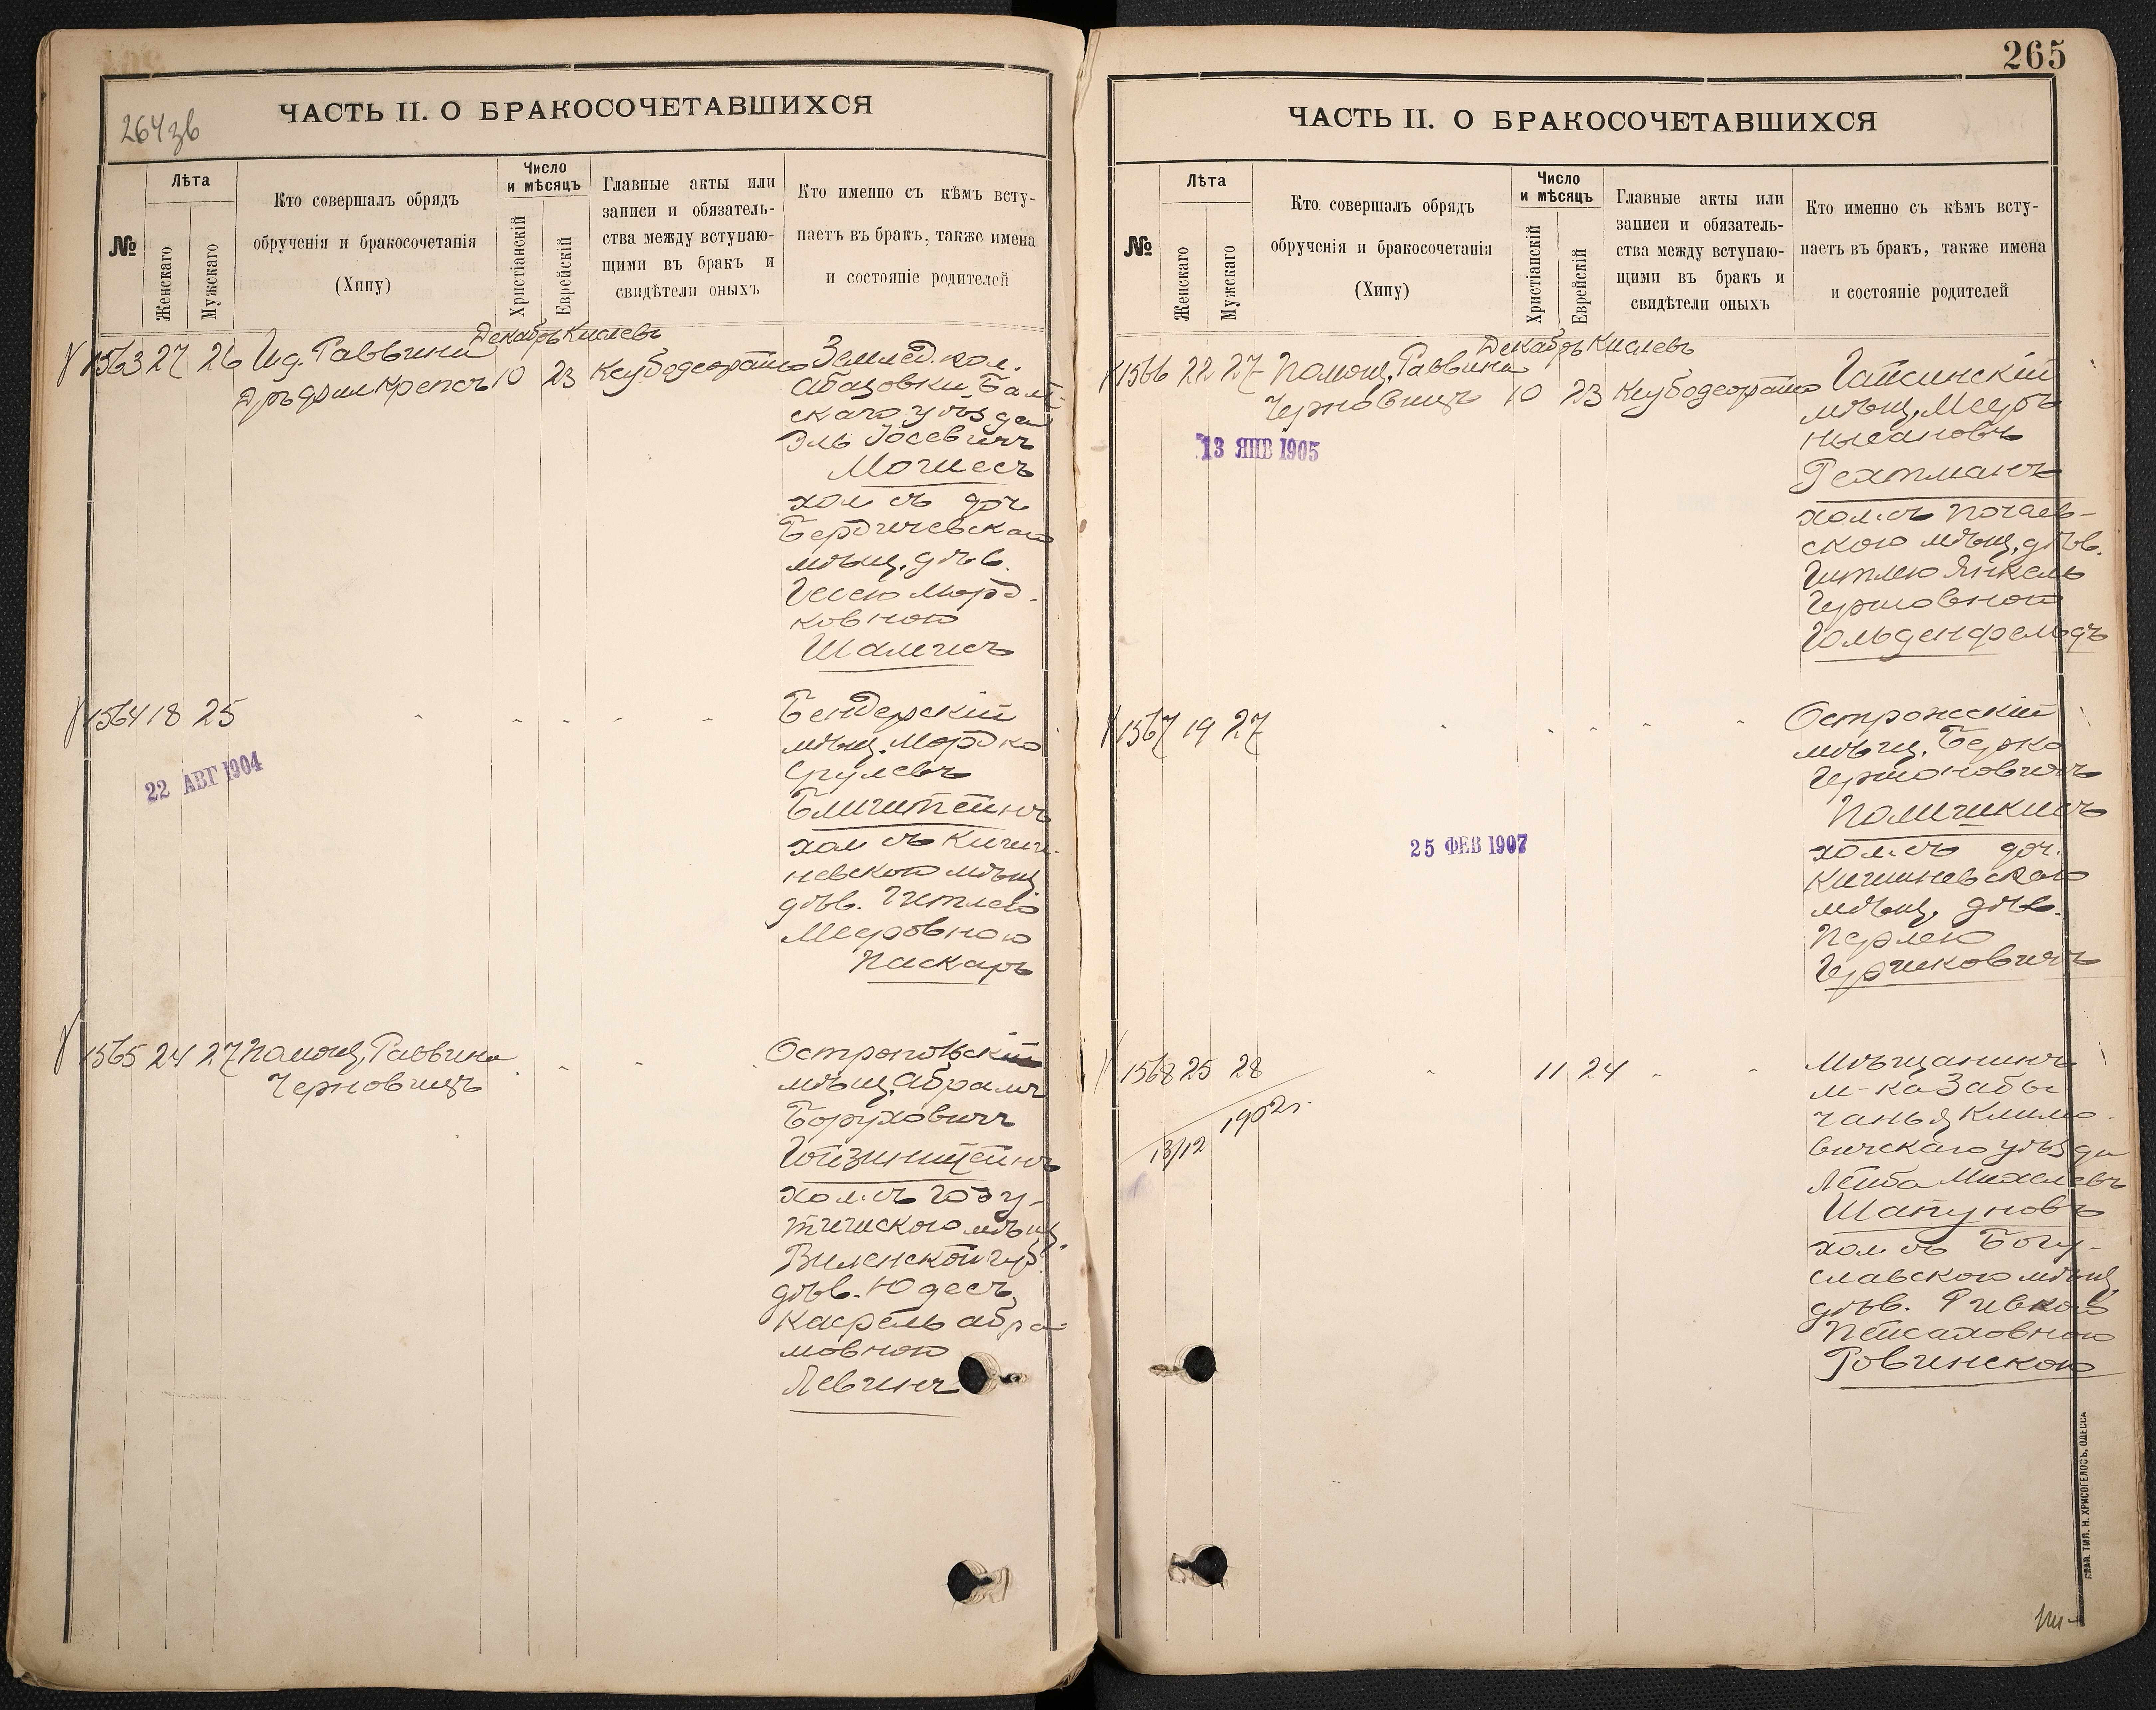 264 зв
ЧАСТЬ II. О БРАКОСОЧЕТАВШИХСЯ
№
Лѣта
Женскаго
Мужскаго
Кто совершалъ обрядъ
обрученія и бракосочетанія
(Хипу)
Число
и мѣсяцъ
Христіанскій
Еврейскій
Главные акты или
записи и обязатель-
ства между вступаю-
щими въ бракъ и
свидѣтели оныхъ
Кто именно съ кѣмъ всту-
паетъ въ бракъ, также имена
и состояніе родителей
Декабрь Кислевъ
1563 27 26 Ид. Раввина
Дръ Крепсъ 10 23
Землед. кол.
Абазовки Балт-
скаго уѣзда
Эль Іосевичъ
Могилесъ
хол съ доч
Бердичевскаго
мѣщ. дѣв.
Гесею Морд-
ковною
Шалисъ
1564 18 25
22 АВГ 1904
Бендерскій
мѣщ. Мордко
Срулевъ
Блиштейнъ
хол съ Киши-
невскою мѣщ
дѣв. Гитлею
Мееровною
Паскаръ
1565 24 27 Помощ. Раввина
Черновицъ
Остропольскій
мѣщ. Абрамъ
Боруховичъ
Гойзинштейнъ
хол. съ
мѣщ.
Виленской губ.
дѣв. Юдесъ
Абра-
мовною
Левинъ
265
ЧАСТЬ II. О БРАКОСОЧЕТАВШИХСЯ
№
Лѣта
Женскаго
Мужскаго
Кто совершалъ обрядъ
обрученія и бракосочетанія
(Хипу)
Число
и мѣсяцъ
Христіанскій
Еврейскій
Главные акты или
записи и обязатель-
ства между вступаю-
щими въ бракъ и
свидѣтели оныхъ
Кто именно съ кѣмъ всту-
паетъ въ бракъ, также имена
и состояніе родителей
Декабрь Кислевъ
1566 22 27 Помощ. Раввина
Черновицъ 10 23
13 ЯНВ 1905
мѣщ. Мееръ
Нысановъ
Рехтманъ
хол. съ Почаев-
скою мѣщ. дѣв.
Гитлею Янкель
Гершовною
Гольденфельдъ
1567 19 27
25 ФЕВ 1907
Острожскій
мѣщ. Берко
Гершоновичъ
хол. съ доч.
Кишиневскаго
мѣщ. дѣв.
Перлею
Гершковичъ
1568 25 28 11 24
13/12 1902 г.
Мѣщанинъ
м-ка Забы
чанья Климо-
вичскаго уѣзда
Лейба Михелевъ
Шапуновъ
хол съ Богу-
славскою мѣщ
дѣв. Ривкою
Пейсаховною
Ровинскою
СЛАВ. ТИП. Н. ХРИСОГЕЛОСЪ, ОДЕССА